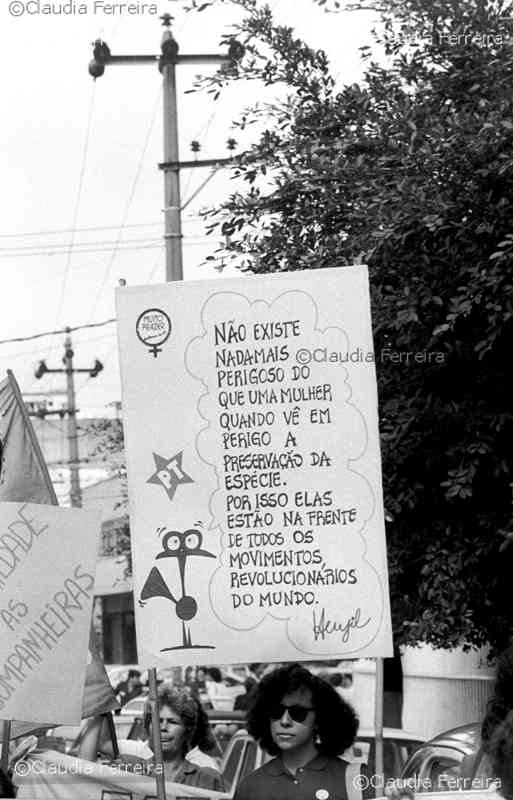 ©Claudia Ferreira
©Claudia Ferreira
MUITO
PRAZER
NÃO EXISTE
NADA MAIS
PERIGOSO DO
QUE UMA MULHER
QUANDO VÊ EM
PERIGO A
PRESERVAÇÃO DA
ESPÉCIE.
POR ISSO ELAS
ESTÃO NA FRENTE
DE TODOS OS
MOVIMENTOS
REVOLUCIONÁRIOS
DO MUNDO.
Henfil
PT
©Claudia Ferreira
DADE
AS
COMPANHEIRAS
©Claudia Ferreira
©Claudia Ferreira